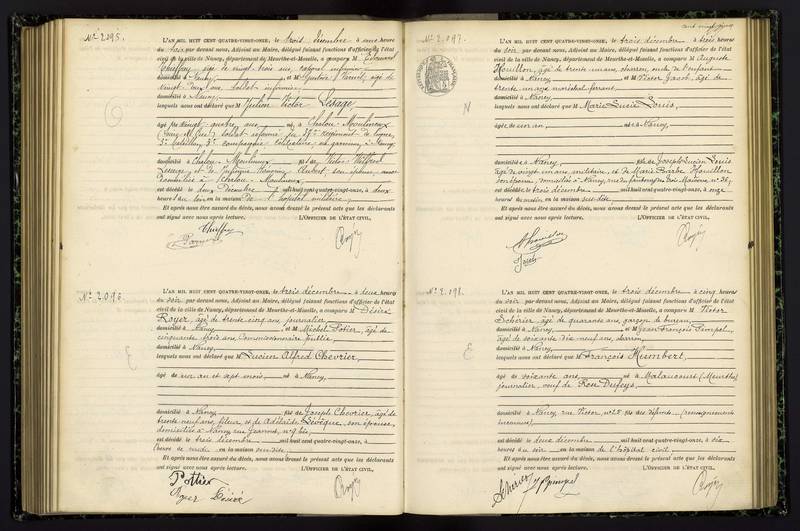 N° 2.095.
L'AN MIL HUIT CENT QUATRE-VINGT-ONZE, le trois décembre à une heure
du soir par devant nous, Adjoint au Maire, délégué faisant fonctions d'officier de l'état
civil de la ville de Nancy, département de Meurthe-et-Moselle, a comparu M
âgé de vingt trois ans, caporal infirmier
domicilié à Nancy, et M âgé de
vingt ans, soldat infirmier
domicilié à Nancy,
lesquels nous ont déclaré que M Julien Victor Lesage,
âgé de vingt quatre ans né à Chalou-Moulineux
soldat réformé du 37e régiment de ligne,
3e bataillon, 3e compagnie en garnison à Nancy
domicilié à Chalou-Moulineux fils de Victor Wilfred
Lesage, et de son épouse,
domiciliés à Chalou-Moulineux
est décédé le deux décembre mil huit cent quatre-vingt-onze, à deux
heures du soir en la maison de l'hôpital militaire,
Et après nous être assuré du décès, nous avons dressé le présent acte que les déclarants
ont signé avec nous après lecture. L'OFFICIER DE L'ÉTAT CIVIL,
N° 2.096.
L'AN MIL HUIT CENT QUATRE-VINGT-ONZE, le trois décembre à deux heures
du soir par devant nous, Adjoint au Maire, délégué faisant fonctions d'officier de l'état
civil de la ville de Nancy, département de Meurthe-et-Moselle, a comparu M Désiré
Royer, âgé de trente cinq ans, journalier,
domicilié à Nancy et M Michel Potier, âgé de
cinquante trois ans, commissionnaire public
domicilié à Nancy,
lesquels nous ont déclaré que M Lucien Alfred Chevrier,
âgé de un an et sept mois né à Nancy,
domicilié à Nancy fils de Joseph Chevrier, âgé de
trente neuf ans, fileur, et de Adélaïde Lévêque, son épouse,
domiciliés à Nancy rue Jeannot, n° 9 bis,
est décédé le trois décembre mil huit cent quatre-vingt-onze, à
heure de midi en la maison susdite,
Et après nous être assuré du décès, nous avons dressé le présent acte que les déclarants
ont signé avec nous après lecture. L'OFFICIER DE L'ÉTAT CIVIL,
Pottier
Royer Désiré
cent vingt cinq
N° 2.097.
L'AN MIL HUIT CENT QUATRE-VINGT-ONZE, le trois décembre à trois heures
du soir par devant nous, Adjoint au Maire, délégué faisant fonctions d'officier de l'état
civil de la ville de Nancy, département de Meurthe-et-Moselle, a comparu M Auguste
Houillon, âgé de trente un ans, oncle de l'enfant
domicilié à Nancy et M Victor Jacob, âgé de
trente un ans, maréchal ferrant,
domicilié à Nancy,
lesquels nous ont déclaré que M Marie Lucie Louis,
âgée de un an née à Nancy,
domiciliée à Nancy fille de Joseph Lucien Louis
âgé de vingt un ans, militaire, et de Marie Barbe Houillon
son épouse, domiciliés à Nancy, rue du faubourg des trois Maisons n° 36,
est décédée le trois décembre mil huit cent quatre-vingt-onze, à onze
heures du matin en la maison susdite,
Et après nous être assuré du décès, nous avons dressé le présent acte que les déclarants
ont signé avec nous après lecture. L'OFFICIER DE L'ÉTAT CIVIL,
A Houillon
Jacob
N° 2.098.
L'AN MIL HUIT CENT QUATRE-VINGT-ONZE, le trois décembre à cinq heures
du soir par devant nous, Adjoint au Maire, délégué faisant fonctions d'officier de l'état
civil de la ville de Nancy, département de Meurthe-et-Moselle, a comparu M Victor
Schérier, âgé de quarante ans, garçon de bureau
domicilié à Nancy et M Jean François Pimpel,
âgé de soixante dix neuf ans,
domicilié à Nancy,
lesquels nous ont déclaré que M François Humbert,
âgé de soixante ans né à Malaucourt (Meurthe)
journalier, veuf de Rose Dufeys,
domicilié à Nancy, rue Victor, n° 28 fils des défunts (renseignements
inconnus),
est décédé le deux décembre mil huit cent quatre-vingt-onze, à six
heures du soir en la maison de l'hôpital civil,
Et après nous être assuré du décès, nous avons dressé le présent acte que les déclarants
ont signé avec nous après lecture. L'OFFICIER DE L'ÉTAT CIVIL,